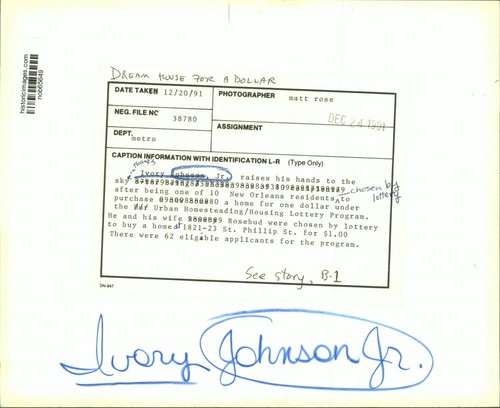 historicimages.com
nob65649
DREAM HOUSE FOR A DOLLAR
DATE TAKEN 12/20/91
PHOTOGRAPHER matt rose
NEG. FILE NO 38780
ASSIGNMENT
DEC 24 1991
DEPT. metro
CAPTION INFORMATION WITH IDENTIFICATION L-R (Type Only)
Ivory Johnson, Jr, raises his hands to the
sky
after being one of 10 New Orleans residents chosen by lottery
purchase a home for one dollar under
the Urban Homesteading/Housing Lottery Program.
He and his wife Rosebud were chosen by lottery
to buy a home at 1821-23 St. Phillip St. for $1.00
There were 62 eligible applicants for the program.
See story, B-1
DN-947
Ivory Johnson Jr.